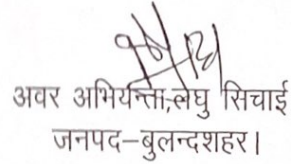 अवर अभियन्ता,लघु सिचाई
जनपद–बुलन्दशहर।